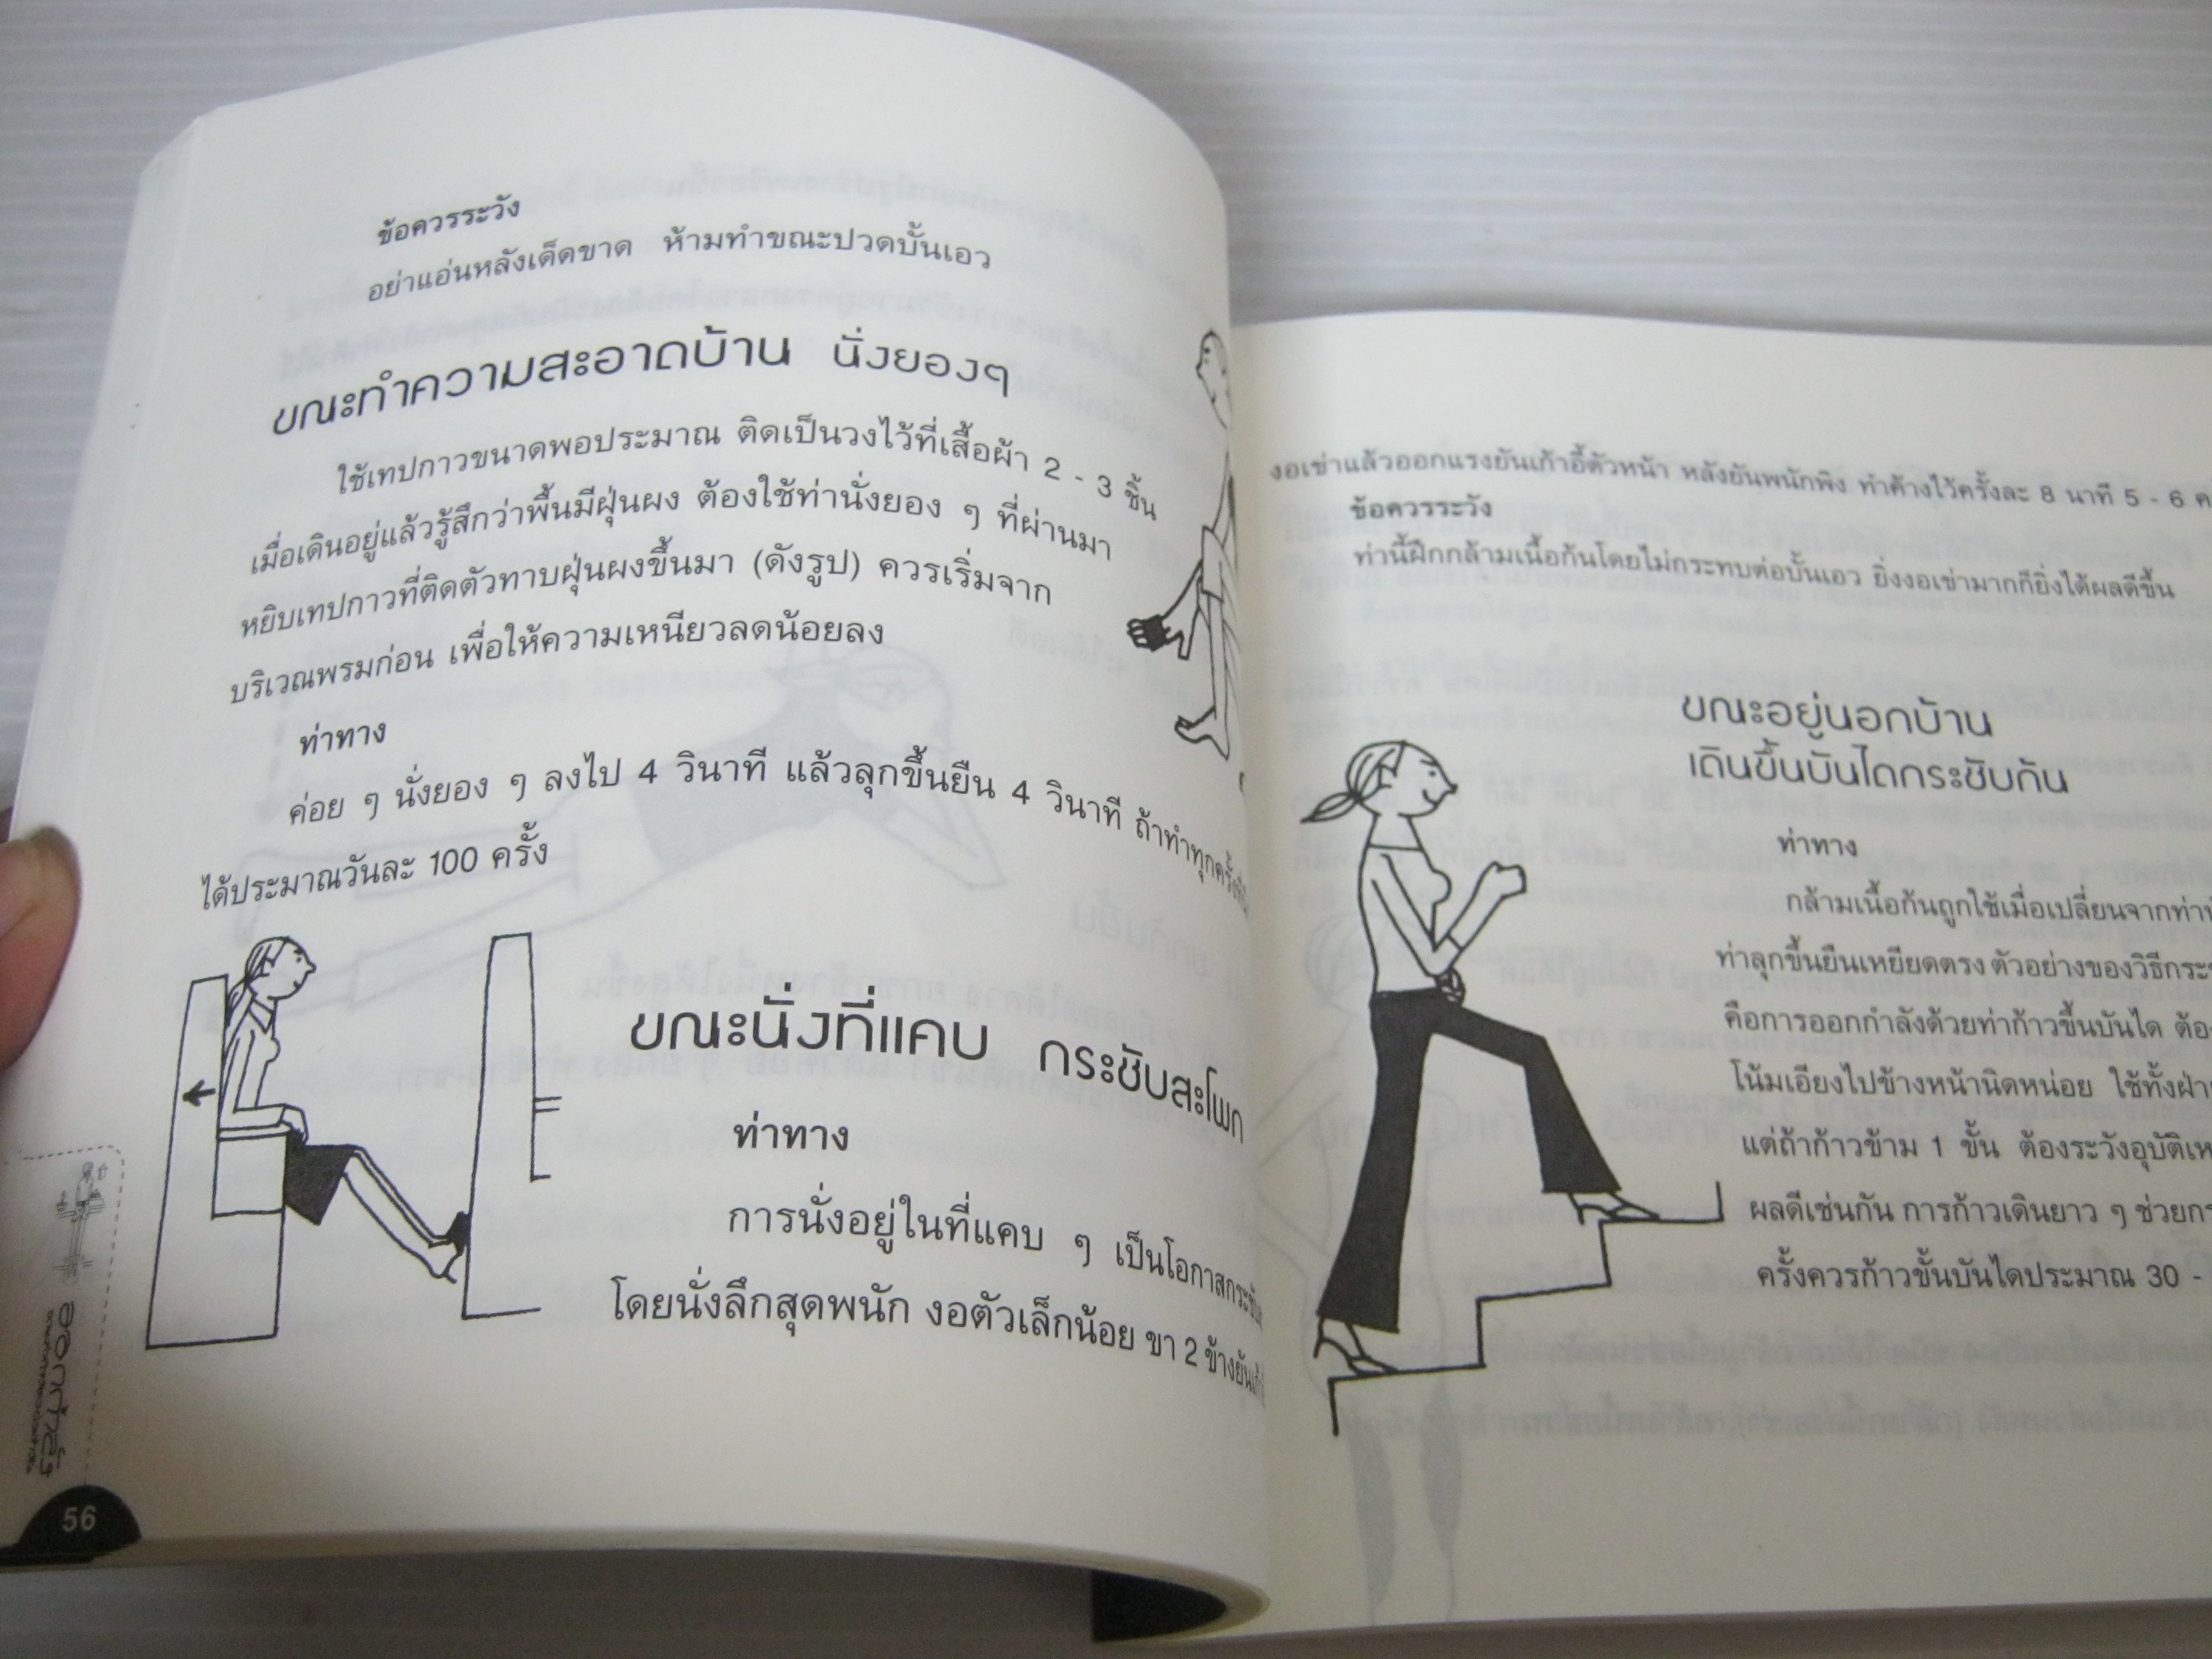 ข้อควรระวัง
อย่าแอ่นหลังเด็ดขาด ห้ามทำขณะปวดบั้นเอว
ขณะทำความสะอาดบ้าน นั่งยองๆ
ใช้เทปกาวขนาดพอประมาณ ติดเป็นวงไว้ที่เสื้อผ้า 2 - 3 ชิ้น
เมื่อเดินอยู่แล้วรู้สึกว่าพื้นมีฝุ่นผง ต้องใช้ท่านั่งยอง ๆ ที่ผ่านมา
หยิบเทปกาวที่ติดตัวทาบฝุ่นผงขึ้นมา (ดังรูป) ควรเริ่มจาก
บริเวณพรมก่อน เพื่อให้ความเหนียวลดน้อยลง
ท่าทาง
ค่อย ๆ นั่งยอง ๆ ลงไป 4 วินาที แล้วลุกขึ้นยืน 4 วินาที ถ้าทำทุกครั้ง
ได้ประมาณวันละ 100 ครั้ง
ขณะนั่งที่แคบ กระชับสะโพก
ท่าทาง
การนั่งอยู่ในที่แคบ ๆ เป็นโอกาสกระชับ
โดยนั่งลึกสุดพนัก งอตัวเล็กน้อย ขา 2 ข้างยัน
ออกกำลัง
56
งอเข่าแล้วออกแรงยันเก้าอี้ตัวหน้า หลังยันพนักพิง ทำค้างไว้ครั้งละ 8 นาที 5 - 6
ข้อควรระวัง
ท่านี้ฝึกกล้ามเนื้อก้นโดยไม่กระทบต่อบั้นเอว ยิ่งงอเข่ามากก็ยิ่งได้ผลดีขึ้น
ขณะอยู่นอกบ้าน
เดินขึ้นบันไดกระชับก้น
ท่าทาง
กล้ามเนื้อก้นถูกใช้เมื่อเปลี่ยนจากท่า
ท่าลุกขึ้นยืนเหยียดตรง ตัวอย่างของวิธี
คือการออกกำลังด้วยท่าก้าวขึ้นบันได
โน้มเอียงไปข้างหน้านิดหน่อย ใช้ทั้ง
แต่ถ้าก้าวข้าม 1 ขั้น ต้องระวัง
ผลดีเช่นกัน การก้าวเดินยาว ๆ
ครั้งควรก้าวขั้นบันไดประมาณ 30 -